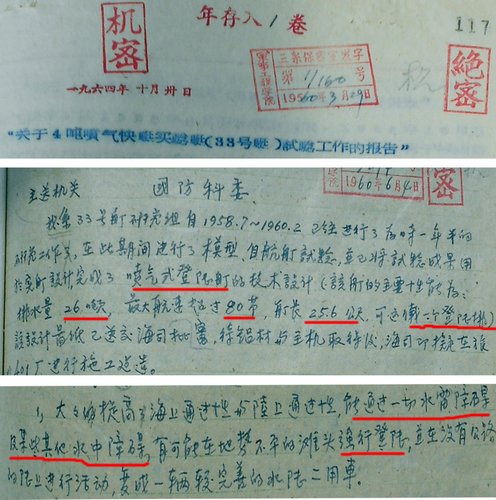 机密
年存入 1 卷
117
三系保密室发字
军事工程学院
第 1/160 号
1960年3月29日
绝密
一九六四年十月卅日
"关于4吨喷气快艇实验艇(33号艇)试验工作的报告"
主送机关 国防科委
1960年6月4日
密
我系33号艇研究组自1958.7~1960.2 已经进行了为时一年半的
研究工作, 在此期间进行了模型、自航艇试验, 并已将试验成果用
喷气式登陆艇的技术设计(该艇的主要性能为:
排水量 26吨, 最大航速超过80节, 艇长25.6公尺, 可运载一个登陆排)
该设计最近已送交海司批审, 待铝材与主机取得后, 海司即拟在
厂进行施工建造。
1, 大大的提高了海上通过性与陆上通过性, 能通过一切水雷障碍
及某些其他水中障碍 有可能在地势不平的滩头强行登陆, 并在没有公路
的陆上进行活动 变成一辆较完善的水陆二用车.